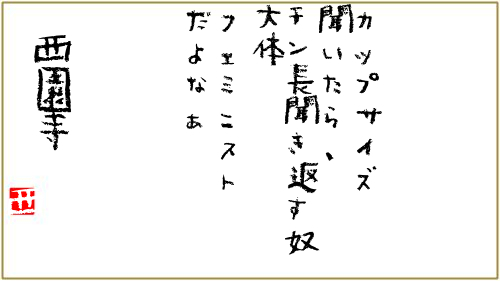 カップサイズ
聞いたら、
チン長聞き返す奴
大体
フェミニスト
だよなぁ
西園寺